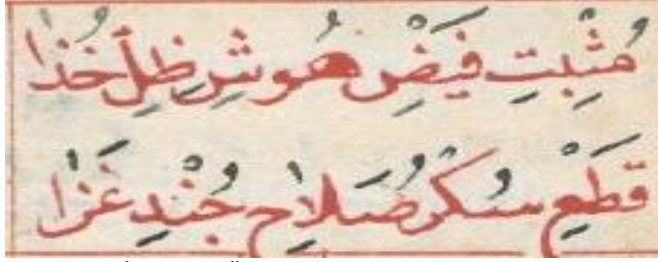 مُثْبِتِ فَيْضِ هُوشِ ظِلِّ خُدَا
قَطْعِ سُكْرُ صَلَاحِ جُنْدِ غَزَا